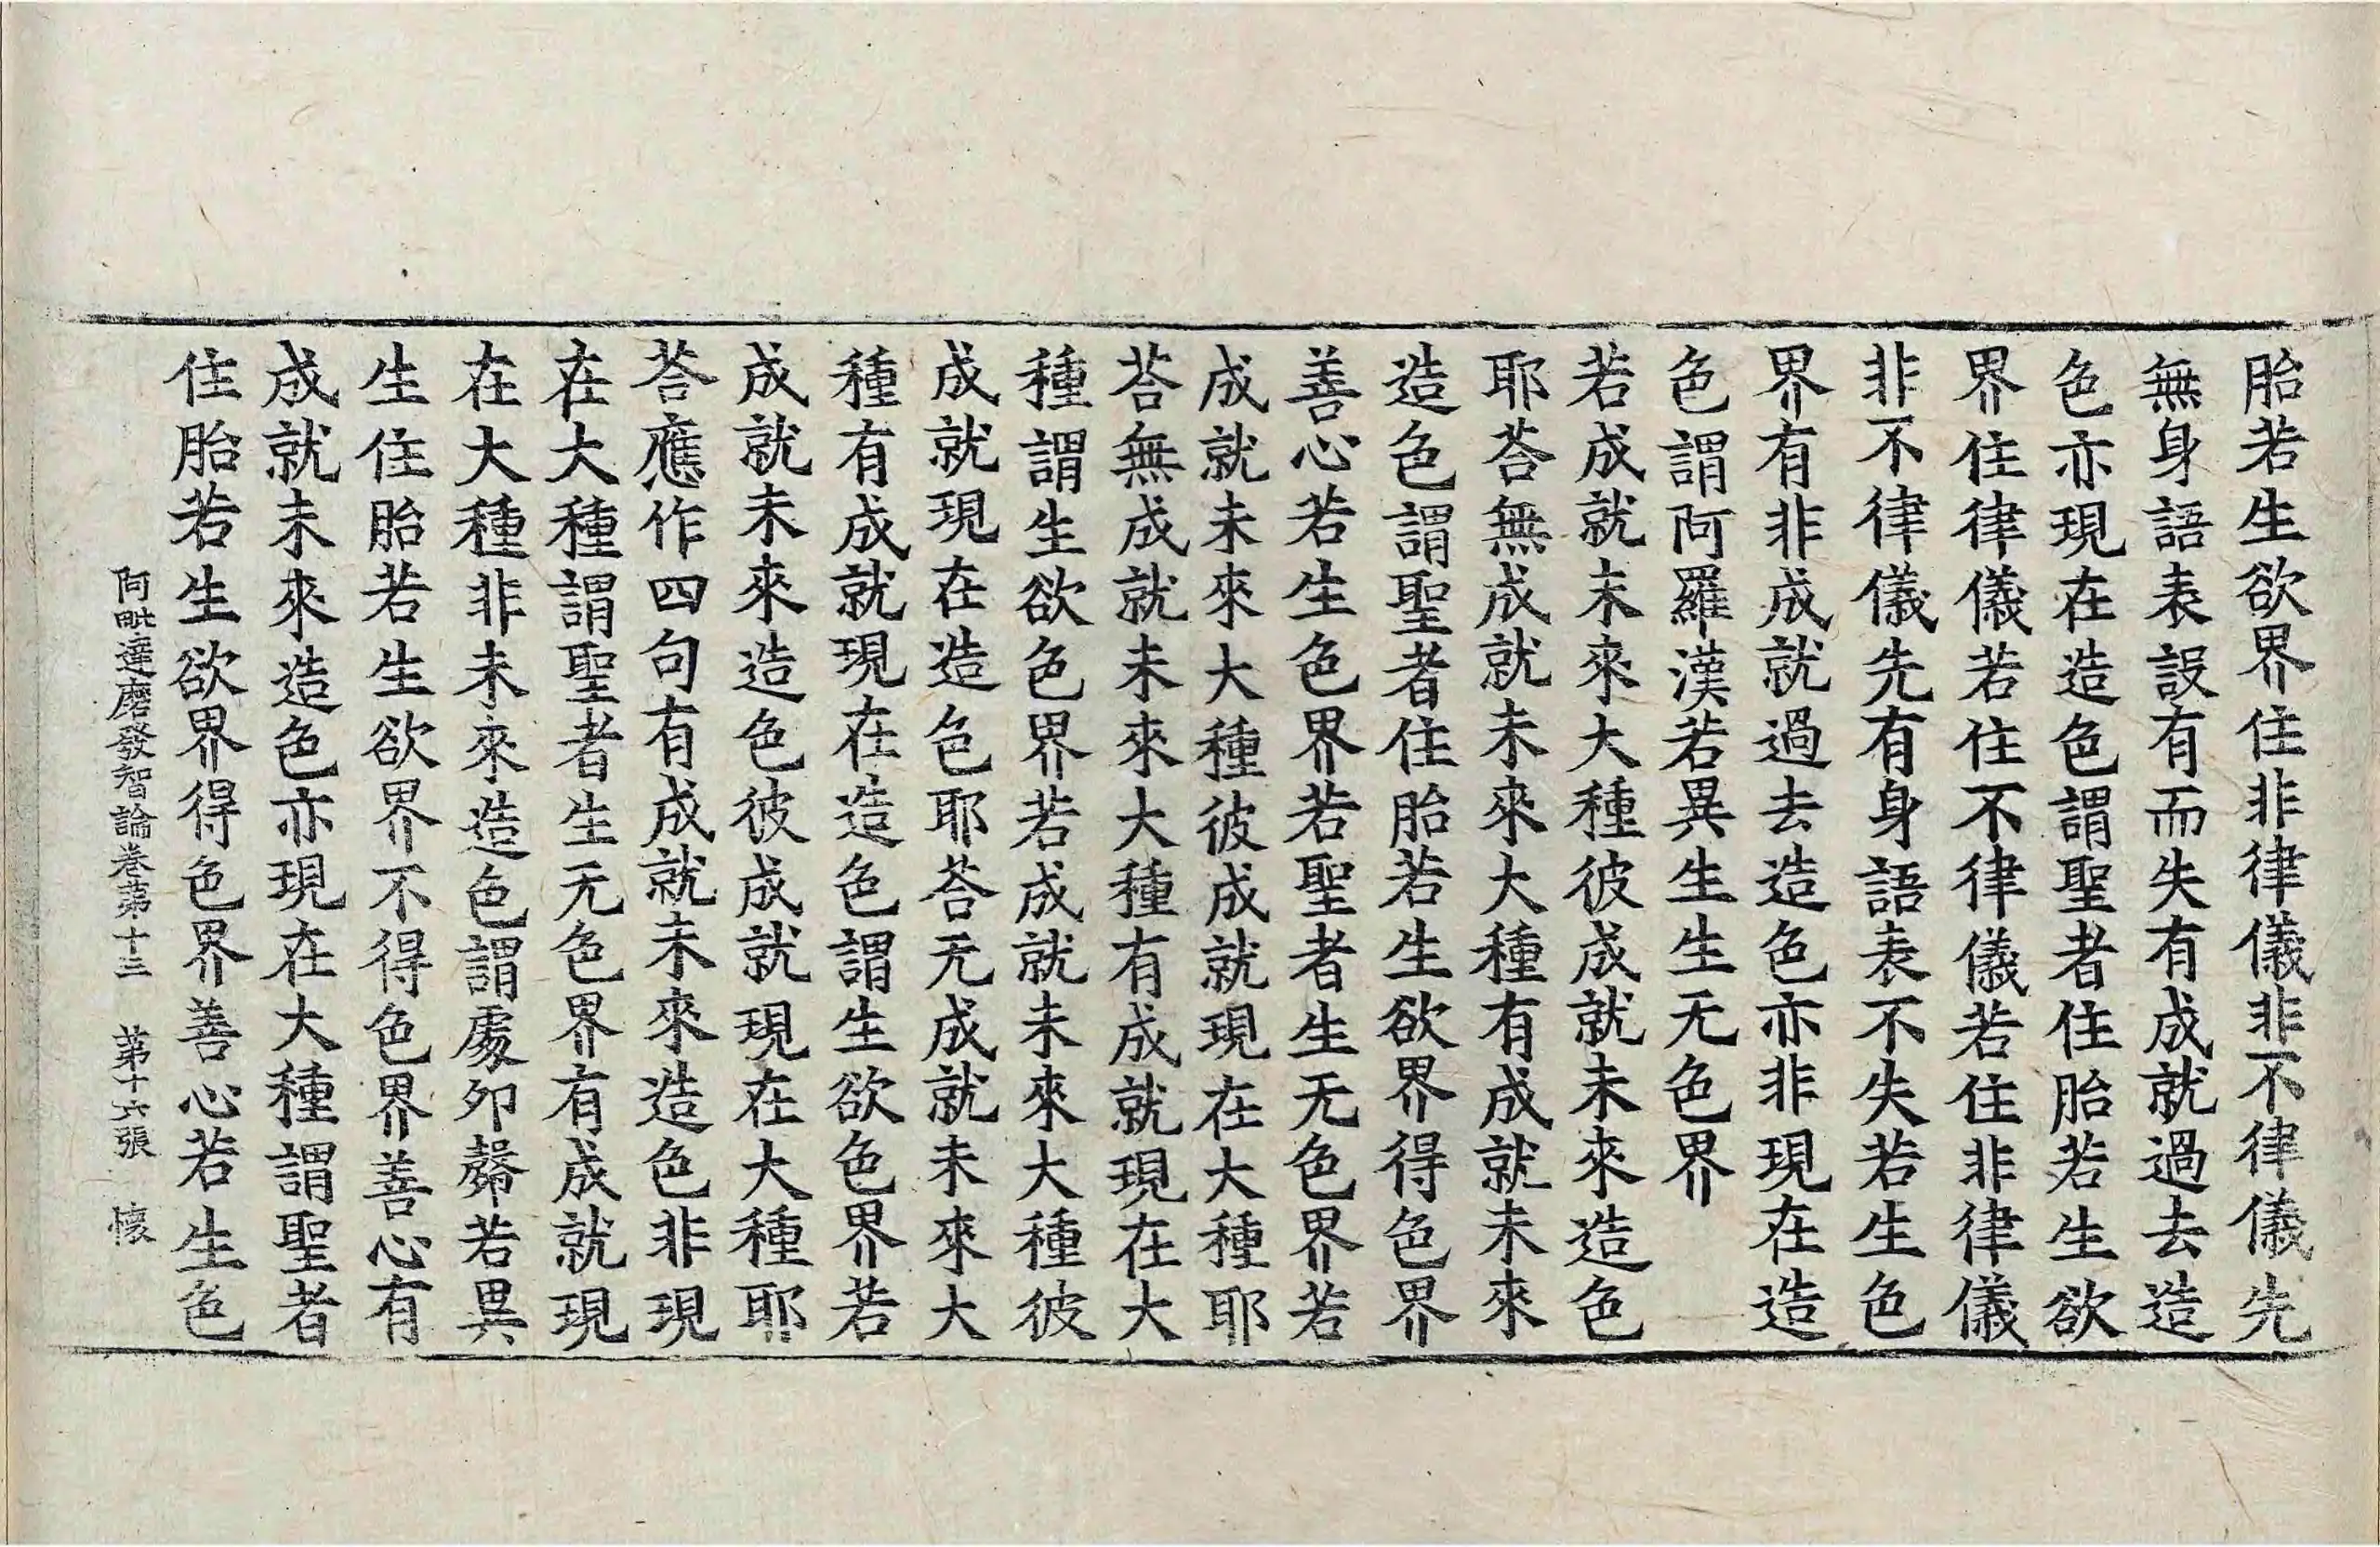 胎若生欲界住非律儀非不律儀先
無身語表設有而失有成就過去造
色亦現在造色謂聖者住胎若生欲
界住律儀若住不律儀若住非律儀
非不律儀先有身語表不失若生色
界有非成就過去造色亦非現在造
色謂阿羅漢若異生生无色界
若成就未來大種彼成就未來造色
耶荅無成就未來大種有成就未來
造色謂聖者住胎若生欲界得色界
善心若生色界若聖者生无色界若
成就未來大種彼成就現在大種耶
荅無成就未來大種有成就現在大
種謂生欲色界若成就未來大種彼
成就現在造色耶荅无成就未來大
種有成就現在造色謂生欲色界若
成就未來造色彼成就現在大種耶
荅應作四句有成就未來造色非現
在大種謂聖者生无色界有成就現
在大種非未來造色謂處卵㲉若異
生住胎若生欲界不得色界善心有
成就未來造色亦現在大種謂聖者
住胎若生欲界得色界善心若生色
阿毗達磨發智論卷第十三 第十六張 懷